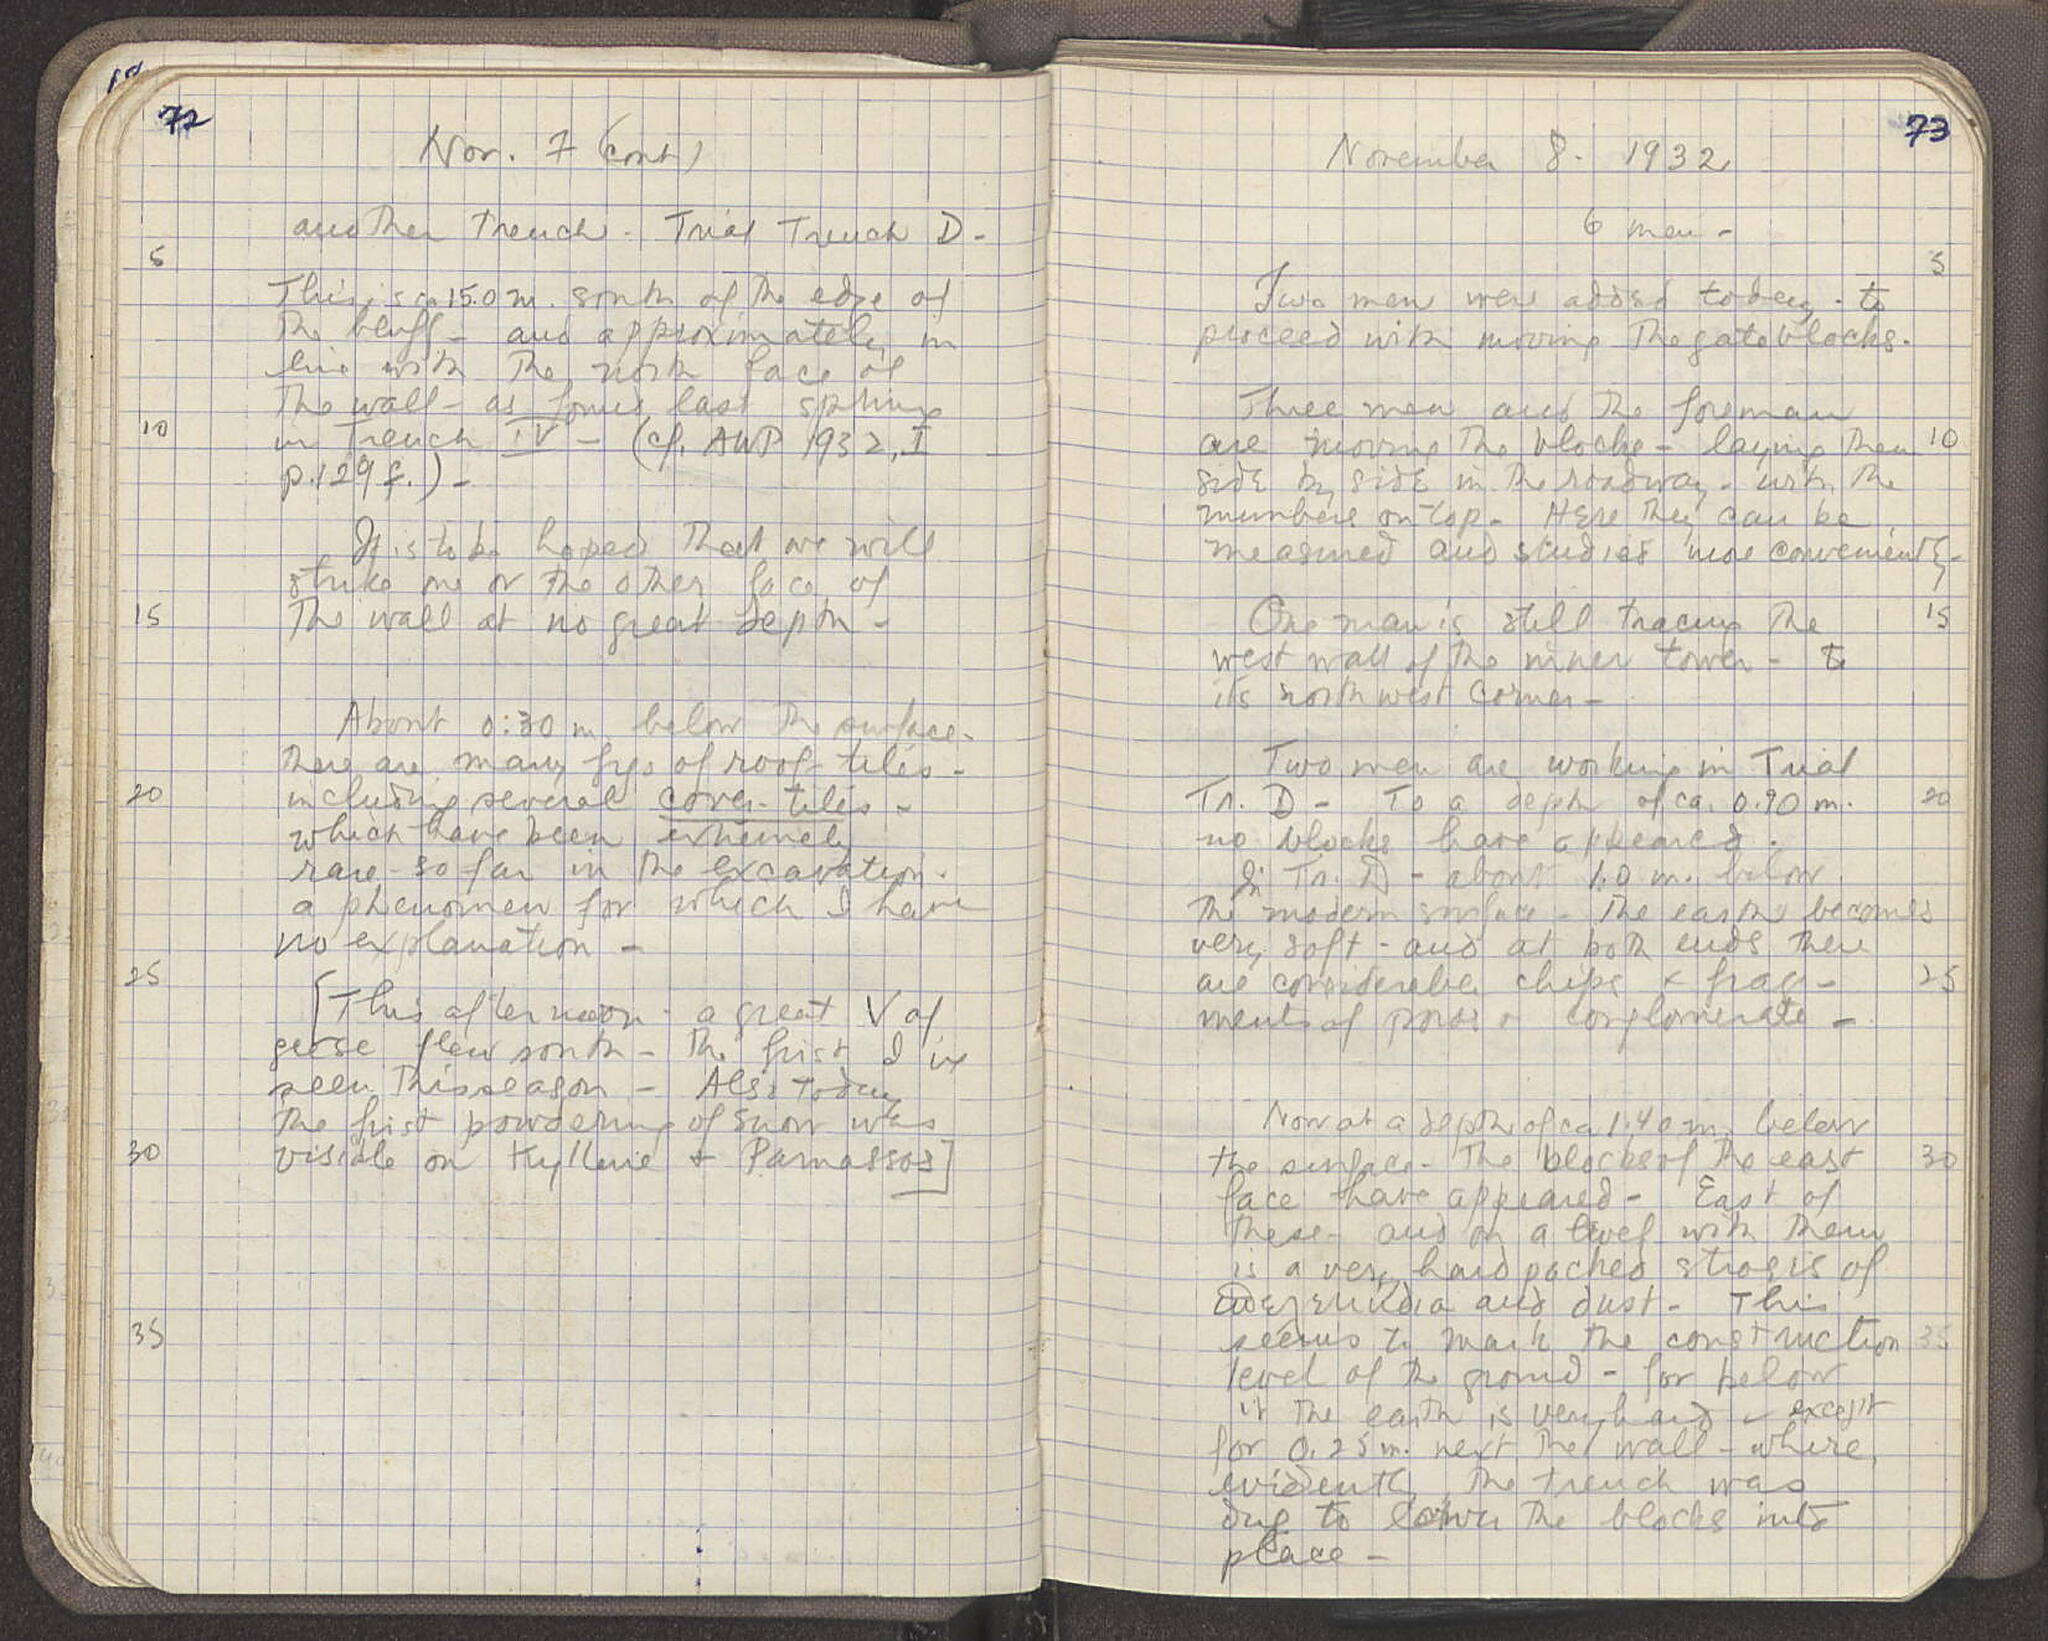 72
Nov. 7 (cont)
another trench - Trial Trench D -
5
This is ca 15.0 m. south of the edge of
the bluff - and approximately in
line with the north face of
the wall - as found last spring
10
in Trench IV - (cf. AWP 1932, I
p. 129 f.) -
It is to be hoped that we will
strike one or the other face of
15
the wall at no great depth -
About 0:30 m. below the surface -
there are many frgs of roof tiles -
20
including several cover-tiles -
which have been extremely
rare so far in the excavation -
a phenomen for which I have
no explanation -
25
[This afternoon - a great V of
geese flew south - the first I've
seen this season - Also today
the first powdering of snow was
30
visible on Kyllene + Parnassos]
35
73
November 8. 1932
6 men -
5
Two men were added today - to
proceed with moving the gate blocks.
Three men and the foreman
are moving the blocks - laying them 10
side by side in the roadway - with the
numbers on top - Here they can be
measured and studied more conveniently -
One man is still tracing the 15
west wall of the inner tower - to
its north west corner -
Two men are working in Trial
Tr. D - To a depth of ca. 0.90 m. 20
no blocks have appeared.
In Tr. D - about 1.0 m. below
the modern surface - the earth becomes
very soft - and at both ends there
are considerable chips & frag- 25
ments of poros & conglomerate -
Now at a depth of ca 1.40 m. below
the surface - the blocks of the east 30
face have appeared - East of
these - and on a level with them
is a very hard packed strosis of
and dust - This
seems to mark the construction 35
level of the ground - for below
it the earth is very hard - except
for 0.25 m. next the wall - where
evidently the trench was
dug to lower the blocks into
place -